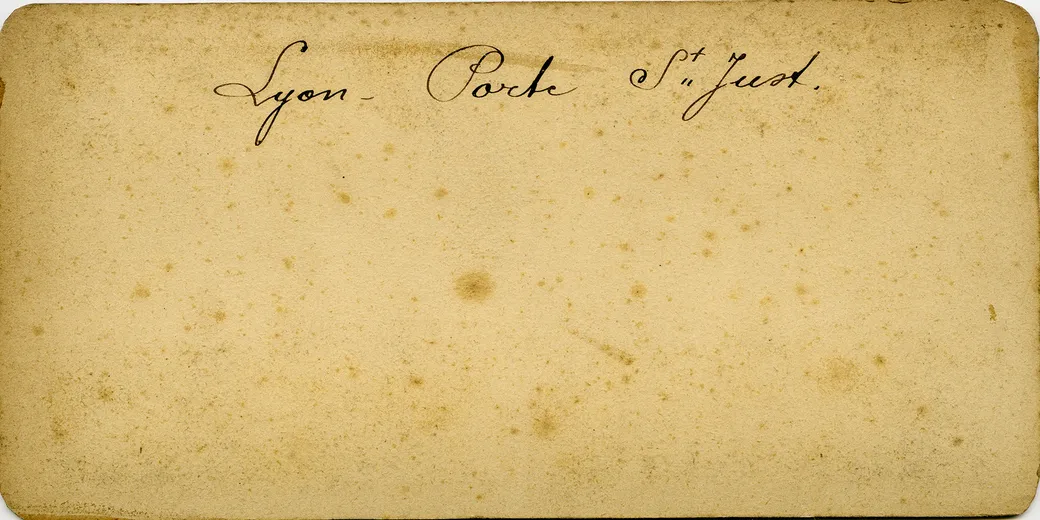 Lyon - Porte St Just.